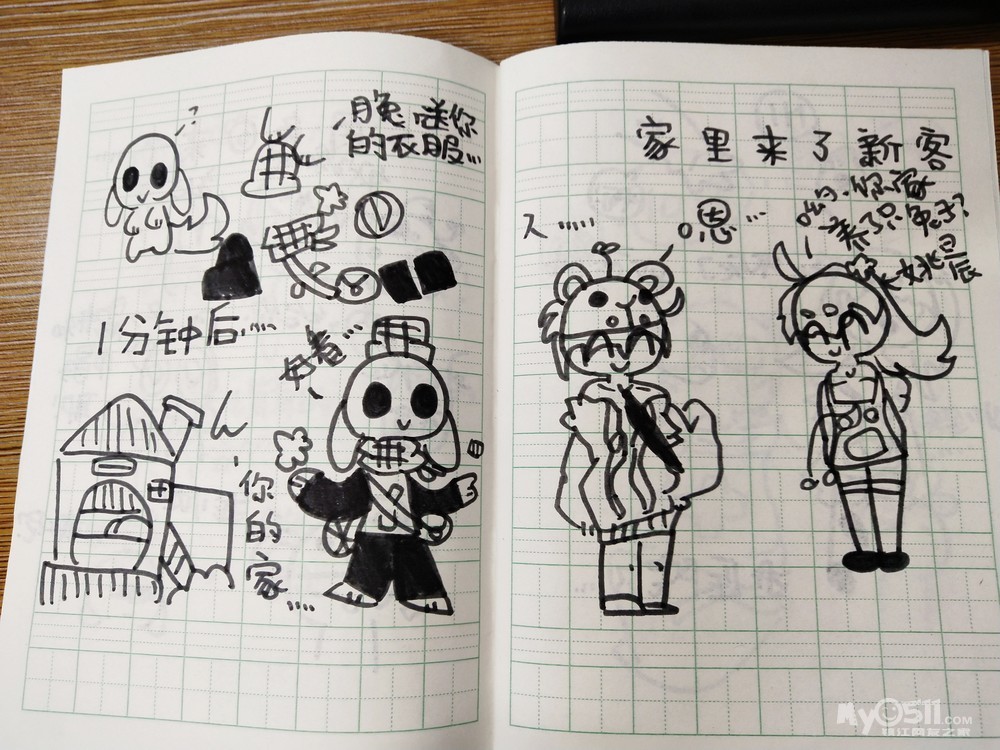 ?
月兔送你
的衣服...
1分钟后......
好看...
你的家....
家里来了新客
人......
嗯...
哟,你家
来了只兔子?
姚星辰
My0511.COM